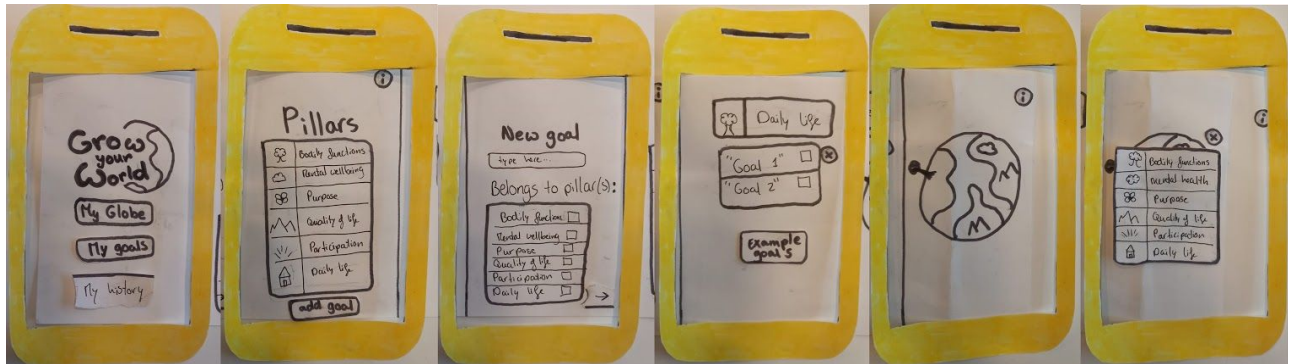 Grow
your
World
My Globe
My goals
My history
i
Pillars
Bodily functions
Mental wellbeing
Purpose
Quality of life
Participation
Daily life
add goal
New goal
type here...
Belongs to pillar(s):
Bodily function
Mental wellbeing
Purpose
Quality of life
Participation
Daily life
Daily life
"Goal 1"
"Goal 2"
Example
goal's
i
i
Bodily functions
mental health
Purpose
Quality of life
Participation
Daily life